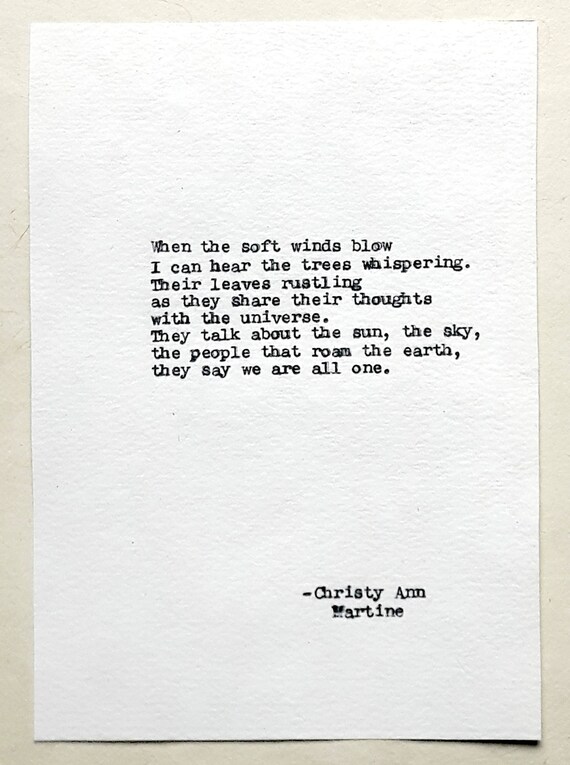 When the soft winds blow
I can hear the trees whispering.
Their leaves rustling
as they share their thoughts
with the universe.
They talk about the sun, the sky,
the people that roam the earth,
they say we are all one.
-Christy Ann
Martine